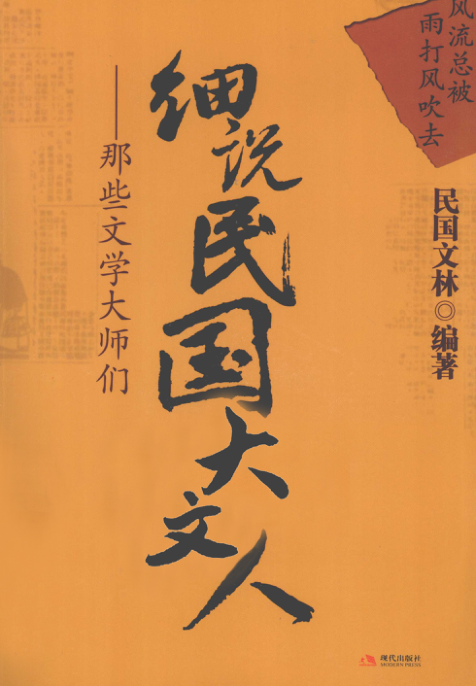 风流总被
雨打风吹去
民国文林◎编著
细说民国大文人
——那些文学大师们
现代出版社
MODERN PRESS